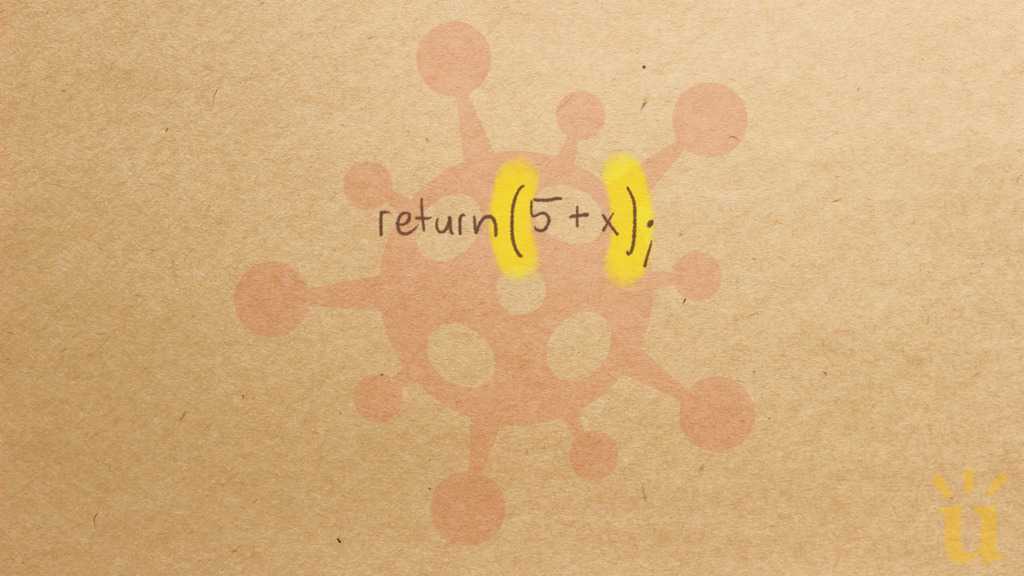 return(5+x);
ü